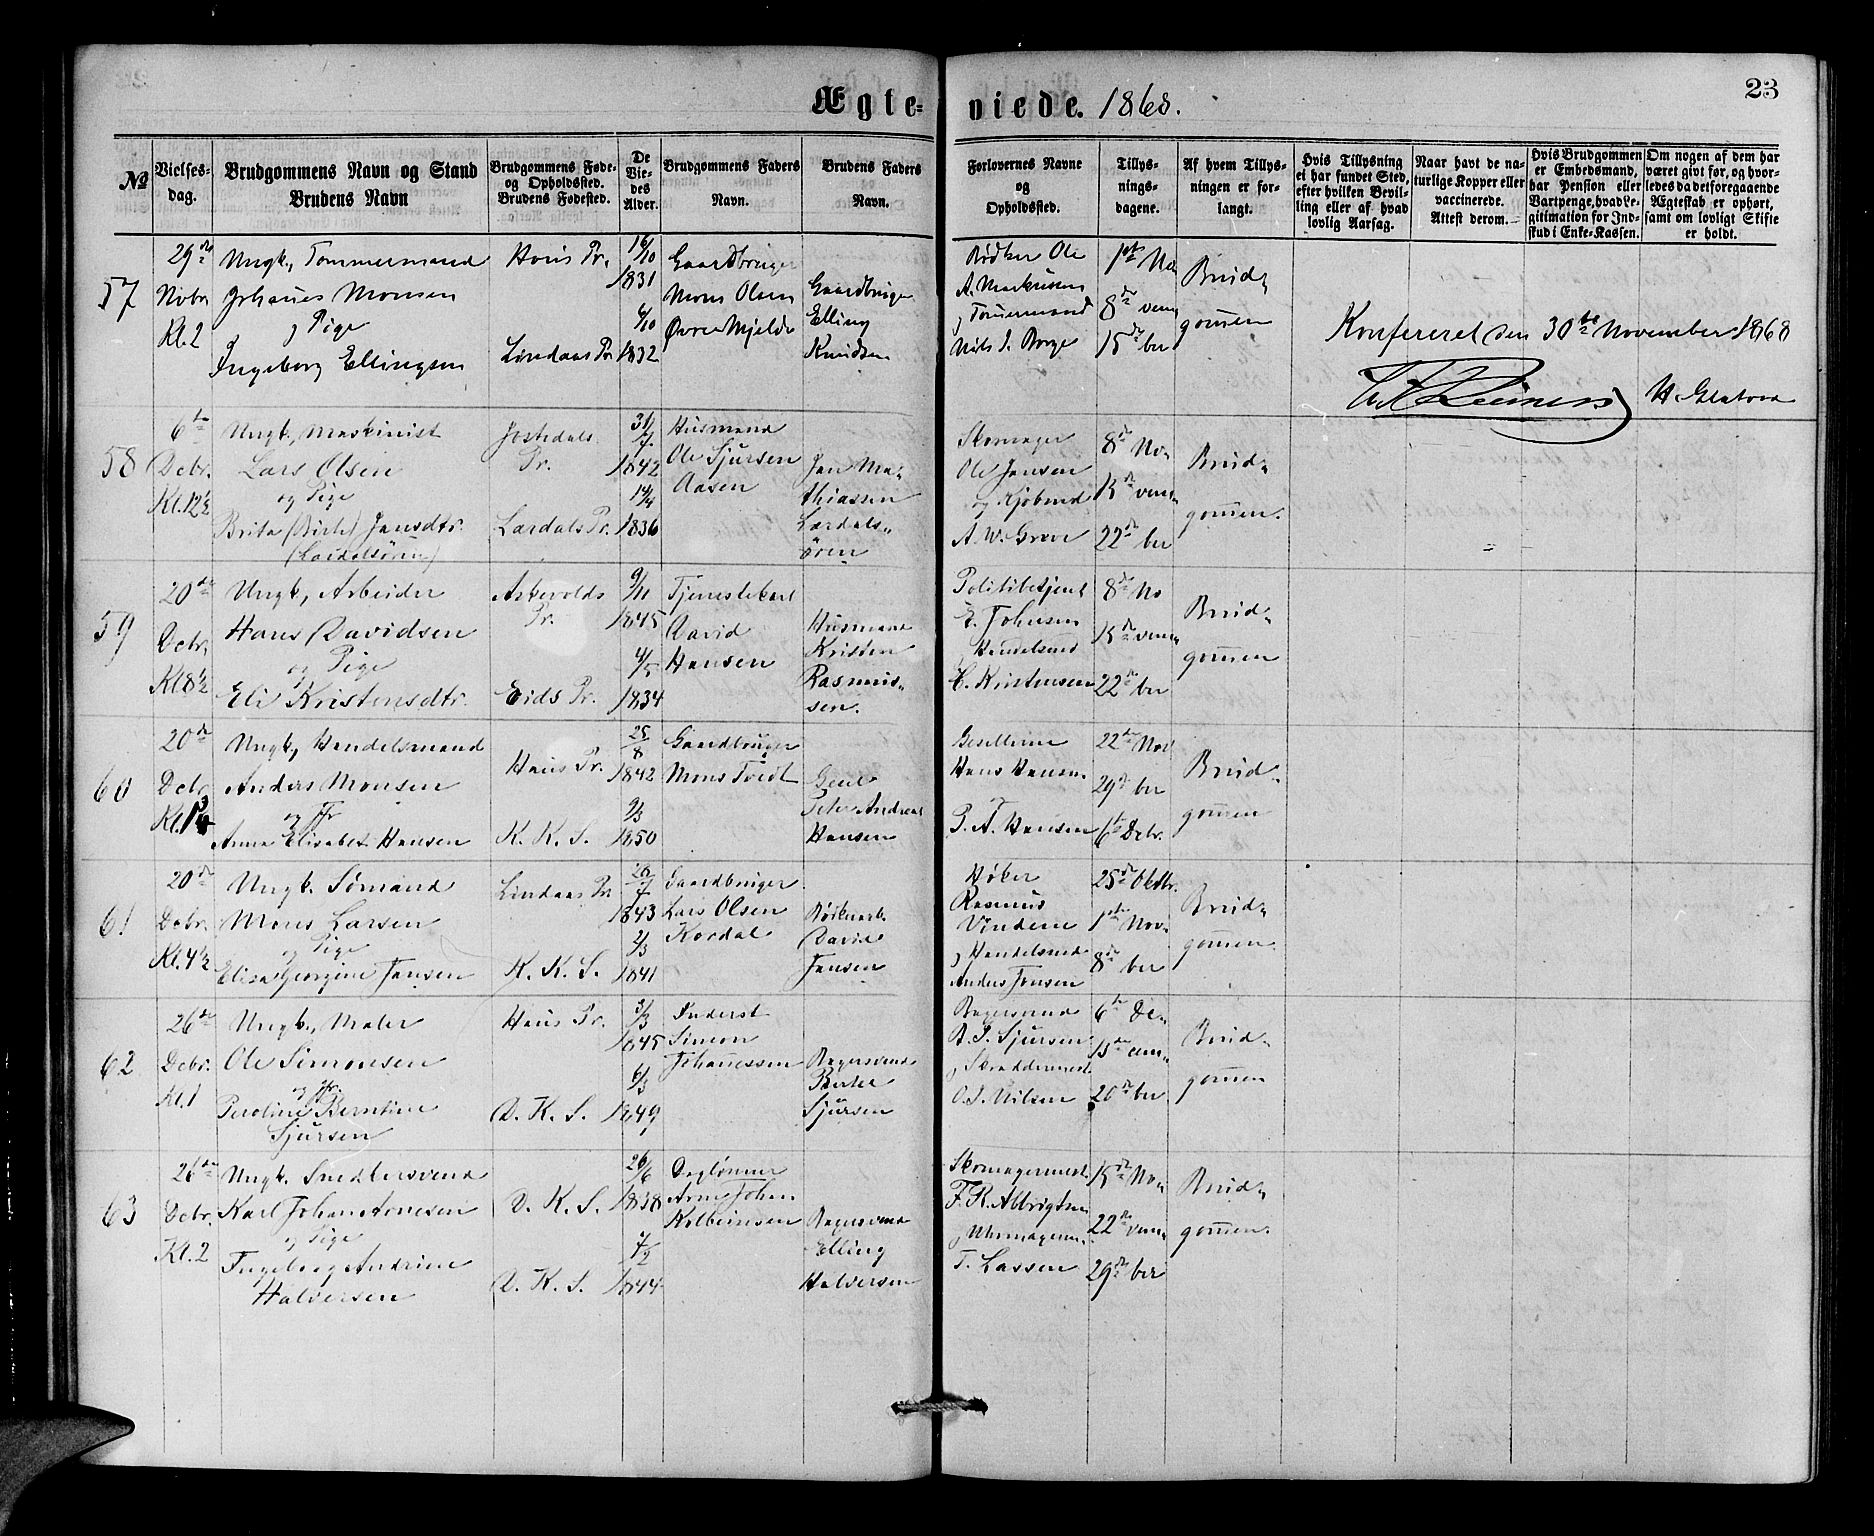 Ægte-viede. 1868.
23
No
Vielses-
dag.
Brudgommens Navn og Stand
Brudens Navn
Brudgommens Føde-
og Opholdssted.
Brudens Fødested.
De
Vie-
des
Alder.
Brudgommens Faders
Navn.
Brudens Faders
Navn.
Forlovernes Navne
og
Opholdssted.
Tillys-
nings-
dagene.
Af hvem Tillys-
ningen er for-
langt.
Hvis Tillysning
ei har fundet Sted,
efter hvilken Bevil-
ling eller af hvad
lovlig Aarsag.
Naar havt de na-
turlige Kopper eller
vaccinerede.
Attest derom.
Hvis Brudgommen
er Embedsmand,
har Pension eller
Vartpenge, hvad Le-
gitimation for Ind-
skud i Enke-Kassen.
Om nogen af dem har
været gift før, og hvor-
ledes da det foregaaende
Ægteskab er ophørt,
samt om lovligt Skifte
er holdt.
57
29de
Novbr
Kl. 2
Ungk., Tømmermand
Johanes Monsen
og Pige
Ingeborg Ellingsen
Hous Pr.
Lindaas Pr.
16/10
1831
6/10
1832
Gaardbruger
Mons Olsen
Øvre Mjelde
Gaardbruger
Elling
Knudsen
Bødker Ole
A. Markussen
og Tømermand
Nils J. Borge
1ste No
8de vem
15de ber
Brud-
gomen
Konfereret den 30te November 1868
58
6te
Decbr.
Kl. 12½
Ungk., Maskinist
Lars Olsen
og Pige
Brita (Birte) Jansdtr.
(Lærdalsøren)
Jostedals
Pr.
Lærdals Pr.
31/7
1842
14/4
1836
Husmand
Ole Sjursen
Aasen
Jan Ma-
thiassen
Lærdals-
øren
Skomager
Ole Jansen
og Kjøbmd
A. W. Greve
8de No-
15de vem-
22de ber
Brud-
gomen.
59
20de
Decbr.
Kl. 8½
Ungk., Arbeider
Hans Davidsen
og Pige
Eli Kristensdtr.
Askevolds
Pr.
Eids Pr.
9/11
1845
4/5
1834
Tjenestekarl
David
Hansen
Husmand
Kristen
Rasmus-
sen.
Politibetjent
E. Johnsen
og Handelsmd
C. Kristensen
8de No
15de vem-
22de ber
Brud-
gomen
60
20de
Decbr
Kl. 1¾
Ungk., Handelsmand
Anders Monsen
og Jfr
Anna Elisabet Hansen
Haus Pr.
K. K. S.
25/8
1842
9/3
1850
Gaardbruger
Mons Tvedt
Peter Andreas
Hansen
Gesellerne
Hans Hansen
P. A. Hansen
22de Nov
29de ber
6te Dcbr.
Brud-
gomen
61
20de
Decbr.
Kl. 4½
Ungk. Sømand
Mons Larsen
og Pige
Elisa Georgine Jansen
Lindaas Pr
K. K. S.
26/7
1843
2/3
1841
Gaardbruger
Lars Olsen
Kordal
David
Jansen
Høker
Rasmus
Vindene
og Handelsmd
Anders Jensen
25de Oktbr.
1ste Nov.
8de ber
Brud-
gomen.
62
26de
Decbr.
Kl. 1
Ungk., Maler
Ole Simonsen
og Jfr.
Peroline Berntine
Sjursen
Haus Pr.
D. K. S.
3/3
1845
6/3
1849
Inderst
Simon
Johanessen
Bagersvend
Sjursen
Bagersvend
B. J. Sjursen
og Skræddermest
O. J. Nilsen
6te De-
13de cem-
20de ber
Brud-
gomen
63
26de
Decbr.
Kl. 2
Ungk. Snedkersvend
Karl Johan Arnesen
og Pige
Ingeborg Andrine
Halversen
D. K. S.
D. K. S.
26/6
1838
4/2
1844
Daglønner
Arne Johan
Kolbeinsen
Bagersvend
Elling
Halversen
Skomagermest.
F. R. Albrigtsen
og Uhrmagerm.
T. Lassen
15de No-
22de vem-
29de ber
Brud-
gomen.